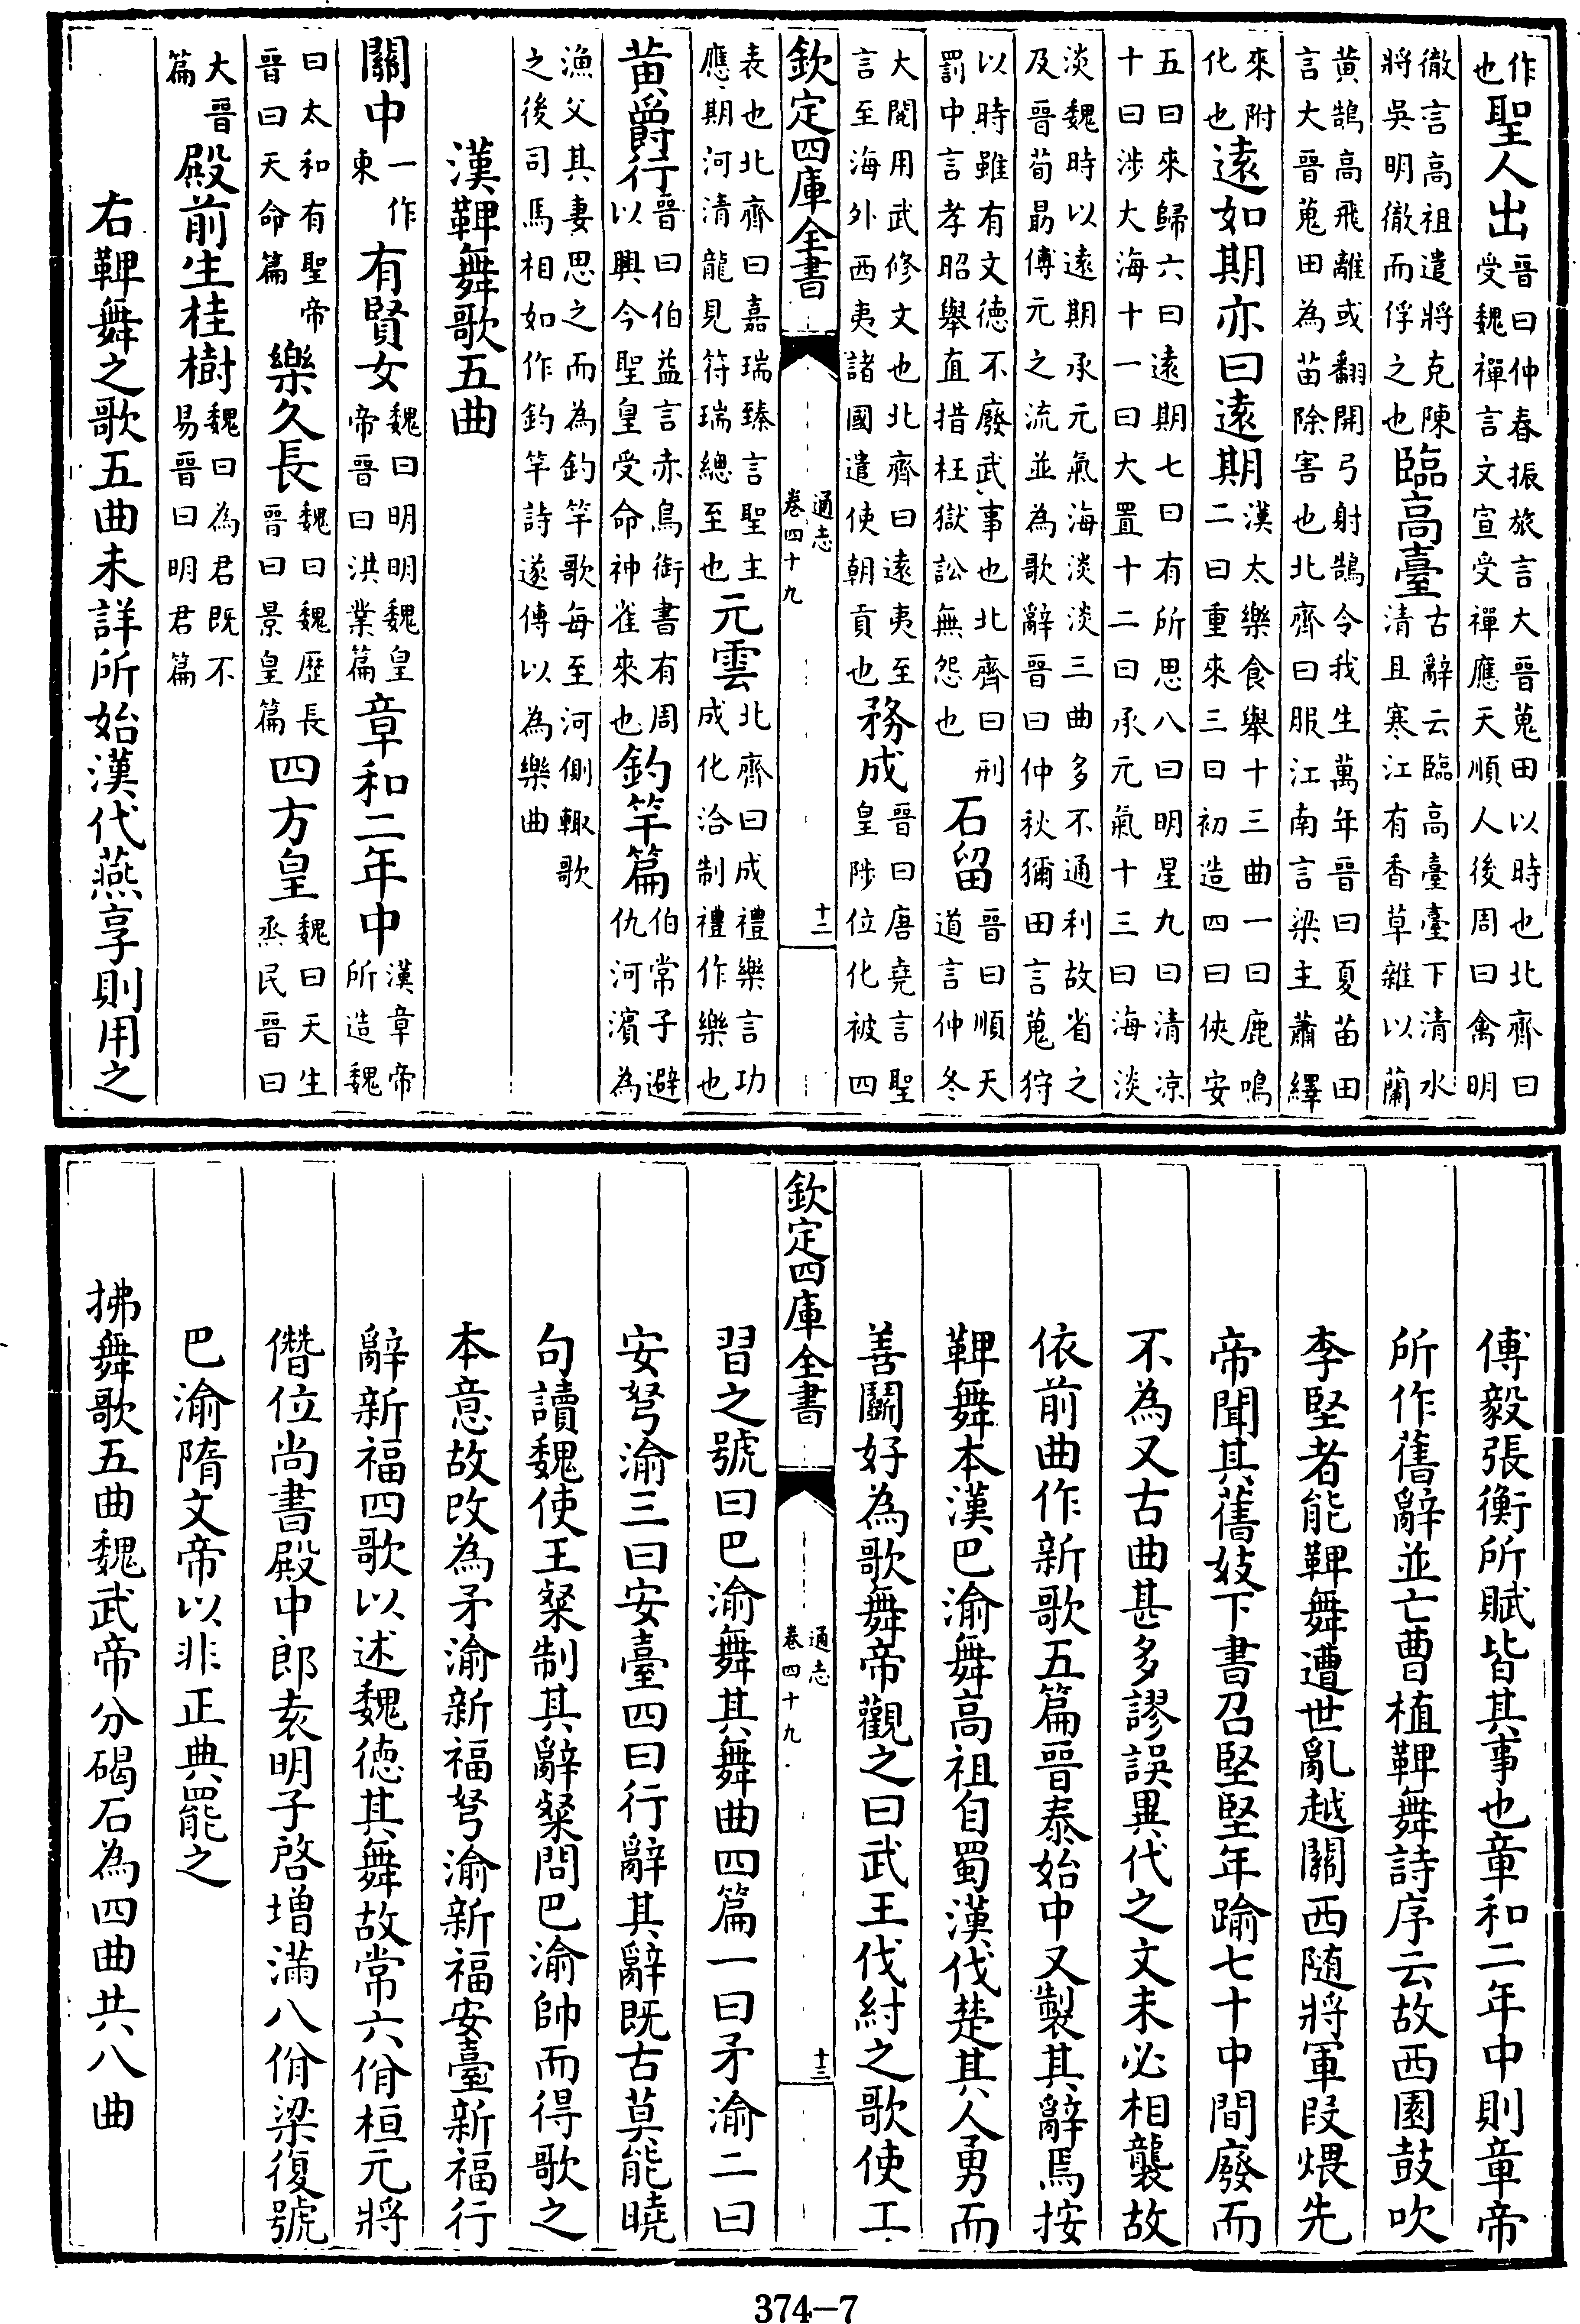 作也聖人出晉曰仲春振旅言大晉蒐田以時也北齊曰受魏禪言文宣受禪應天順人後周曰禽明
徹言高祖遣將克陳將吳明徹而俘之也臨高臺古辭云臨高臺臺下清水清且寒江有香草雜以蘭
黃鵠高飛離或翻開弓射鵠令我生萬年晉曰夏苗田言大晉蒐田為苗除害也北齊曰服江南言梁主蕭繹
來附化也遠如期亦曰遠期漢太樂食舉十三曲一曰鹿鳴二曰重來三曰初造四曰俠安
五曰來歸六曰遠期七曰有所思八曰明星九曰清涼十曰涉大海十一曰大置十二曰承元氣十三曰海淡
淡魏時以遠期承元氣海淡淡三曲多不通利故省之及晉荀勗傅元之流並為歌辭晉曰仲秋獮田言蒐狩
以時雖有文德不廢武事也北齊曰刑罰中言孝昭舉直措枉獄訟無怨也石留晉曰順天道言仲冬
大閱用武修文也北齊曰遠夷至言至海外西夷諸國遣使朝貢也務成晉曰唐堯言聖皇陟位化被四
欽定四庫全書 通志卷四十九 十二
表也北齊曰嘉瑞臻言聖主應期河清龍見符瑞總至也元雲北齊曰成禮樂言功成化洽制禮作樂也
黃爵行晉曰伯益言赤烏銜書有周以興今聖皇受命神雀來也釣竿篇伯常子避仇河濱為
漁父其妻思之而為釣竿歌每至河側輒歌之後司馬相如作釣竿詩遂傳以為樂曲
漢鞞舞歌五曲
關中一作東有賢女魏曰明明魏皇帝晉曰洪業篇章和二年中漢章帝所造魏
曰太和有聖帝晉曰天命篇樂久長魏曰魏歷長晉曰景皇篇四方皇魏曰天生烝民晉曰
大晉篇殿前生桂樹魏曰為君既不易晉曰明君篇
右鞞舞之歌五曲未詳所始漢代燕享則用之
傅毅張衡所賦皆其事也章和二年中則章帝
所作舊辭並亡曹植鞞舞詩序云故西園鼓吹
李堅者能鞞舞遭世亂越關西隨將軍段煨先
帝聞其舊妓下書召堅堅年踰七十中間廢而
不為又古曲甚多謬誤異代之文未必相襲故
依前曲作新歌五篇晉泰始中又製其辭焉按
鞞舞本漢巴渝舞高祖自蜀漢伐楚其人勇而
善鬭好為歌舞帝觀之曰武王伐紂之歌使工
欽定四庫全書 通志卷四十九 十三
習之號曰巴渝舞其舞曲四篇一曰矛渝二曰
安弩渝三曰安臺四曰行辭其辭既古莫能曉
句讀魏使王粲制其辭粲問巴渝帥而得歌之
本意故改為矛渝新福弩渝新福安臺新福行
辭新福四歌以述魏德其舞故常六佾桓元將
僭位尚書殿中郎袁明子啓增滿八佾梁復號
巴渝隋文帝以非正典罷之
拂舞歌五曲魏武帝分碣石為四曲共八曲
374-7